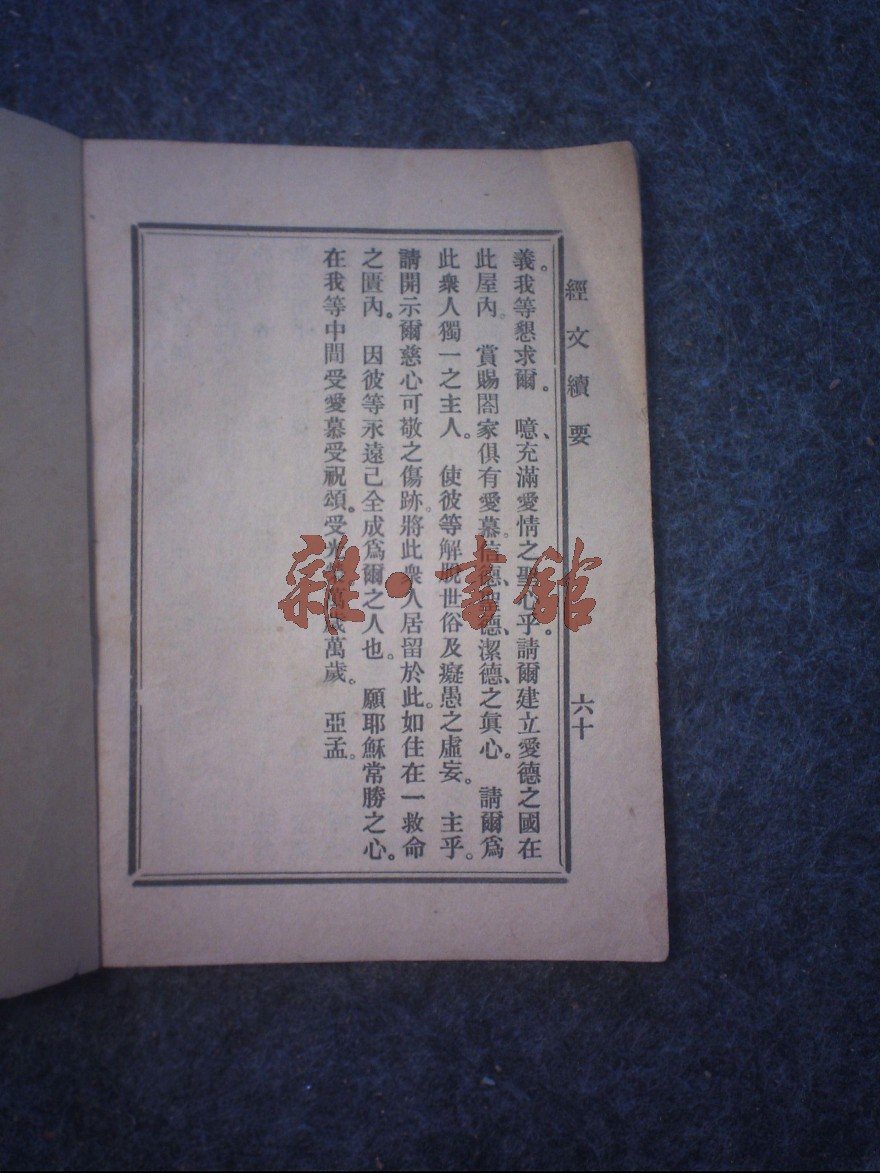 經文續要
六十
義。我等懇求爾。噫、充滿愛情之聖心乎。請爾建立愛德之國在
此屋內。賞賜閤家俱有愛慕。信德、聖德、潔德、之眞心。請爾爲
此衆人獨一之主人。使彼等解脫世俗及癡愚之虛妄。主乎。
請開示爾慈心可敬之傷跡。將此衆人居留於此。如住在一救命
之匱內。因彼等永遠已全成爲爾之人也。願耶穌常勝之心。
在我等中間受愛慕受祝頌。受光榮萬歲萬歲。亞孟。
雜·書館